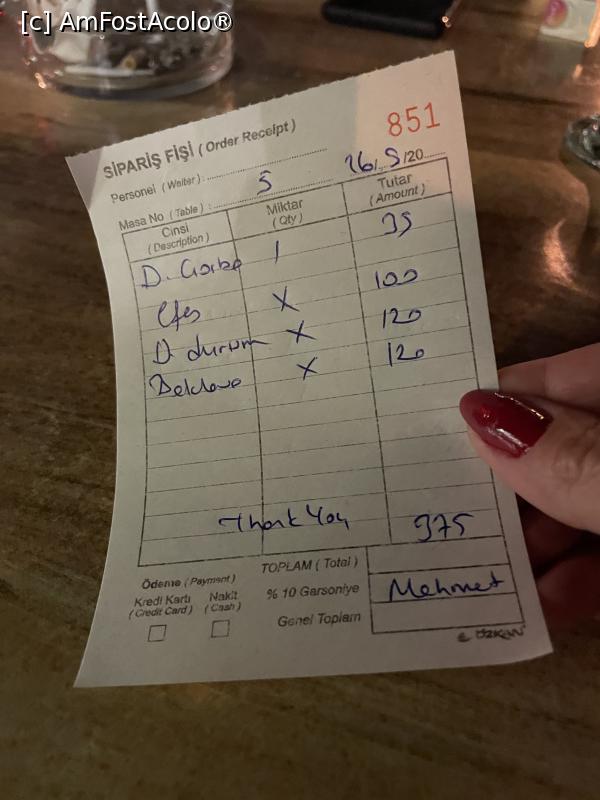 [c] AmFostAcolo®
851
SİPARİŞ FİŞİ (Order Receipt)
Personel (Waiter) :
26/5/20
Masa No (Table) : 5
Cinsi (Description) Miktar (Qty) Tutar (Amount)
D. Corba 1 35
Efes X 100
D. durum X 120
Baklava X 120
Thank You 375
TOPLAM (Total)
Ödeme (Payment)
Kredi Kartı (Credit Card) Nakit (Cash)
% 10 Garsoniye Mehmet
Genel Toplam
ÖZKAN